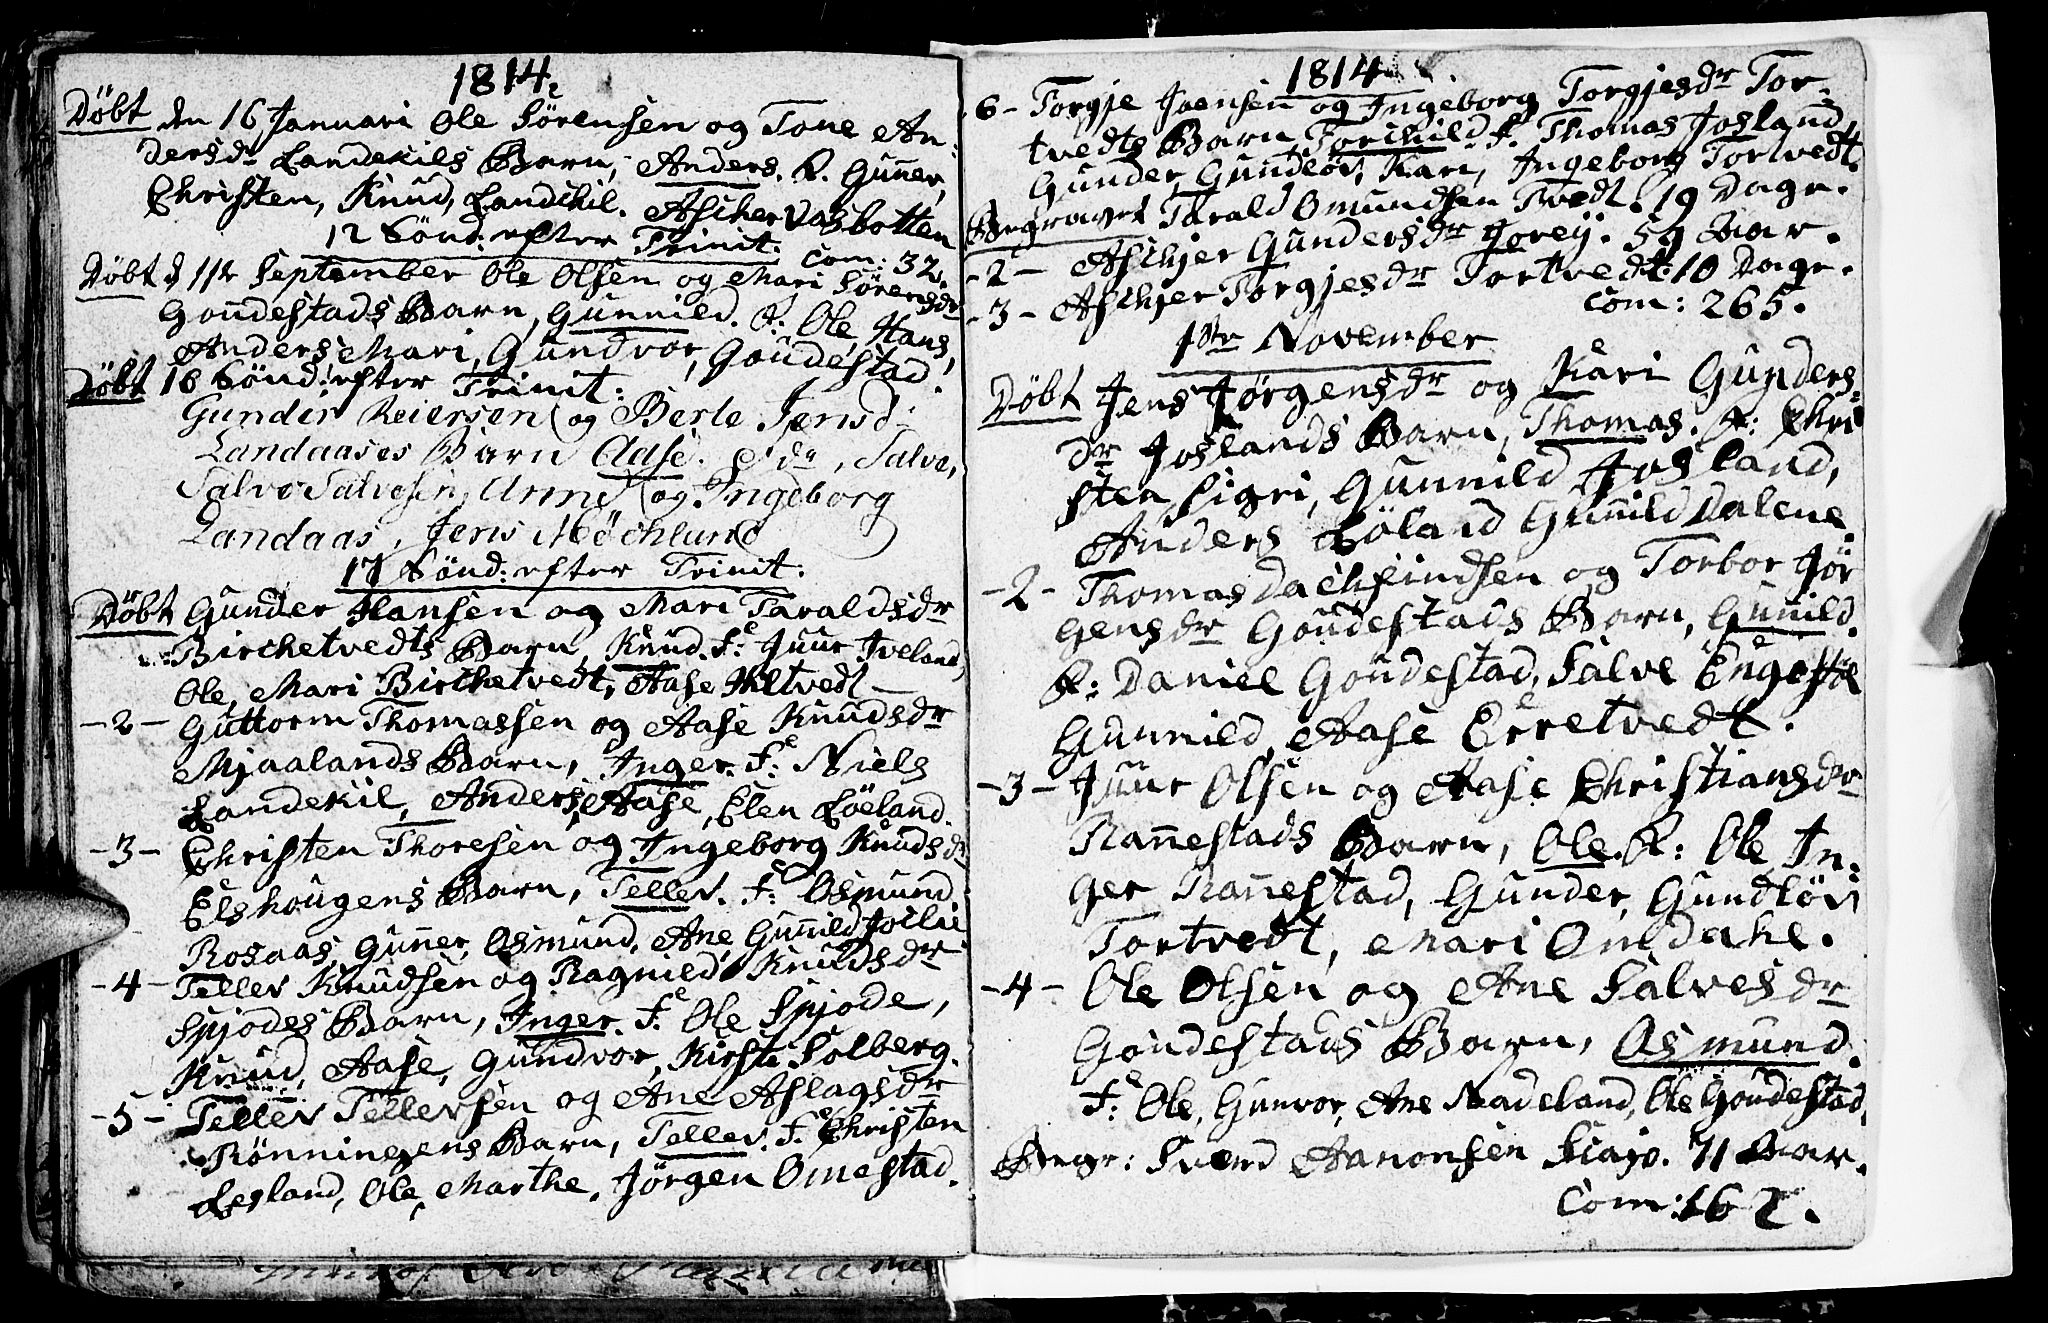 1814
Döbt den 16 Januari Ole Sörensen og Tone An-
dersdr Landekils Barn, Anders. F. Guner,
Christen, Knud, Landekil. Ascher Dasbotten
12 Sönd: efter Trinit. Com: 32.
Döbt d 11te September Ole Olsen og Mari Sörensdr
Goudestads Barn, Gunnild. F: Ole, Hans,
Anders, Mari, Gundvor, Goudestad.
Döbt 16 Sönd: efter Trinit:
Gunder Reiersen og Berle Jensd:
Landaases Barn Aase. Salve,
Salve Salvesen, Anne og Ingeborg
Landaas, Jens Höchlund
17 Sönd: efter Trinit:
Döbt Gunder Hansen og Mari Taraldsdr
Birchetvedts Barn, Knud. F: Juur Iveland,
Ole, Mari Birchetvedt, Aase Hiltvedt
-2- Guttorm Thomassen og Aase Knudsdr
Mjaalands Barn, Inger. F: Niels
Landekil, Anders, Aase, Elen Löeland.
-3- Christen Thoresen og Ingeborg Knudsdr
Elshougens Barn, Tellev. F: Osmund
Rosaas, Guner, Osmund, Ane, Gunild
-4- Tellev Knudsen og Ragnild Knudsdr
Spjodes Barn, Inger. F: Ole Spjode,
Knud, Aase, Gundvor, Kirste Solberg.
-5- Tellev Tellevsen og Ane Aslagsdr
Rönningens Barn, Tellev. F: Christen
Legland, Ole, Marthe, Jörgen Omestad.
1814
6- Torgje Joensen og Ingeborg Torgjesdr Tor-
tvedts Barn, Torchild. F: Thomas Josland,
Gunder, Gundlöv, Kari, Ingeborg Tortvedt.
Begravet Tarald Omundsen Tvedt. 19 Dage.
-2- Aschjer Gundersdr Jorey. 59 Aar.
-3- Aschjer Torgjesdr Tortvedt. 10 Dage.
Com: 265.
1ste November
Döbt Jens Jörgensdr og Kari Gunders-
dr Joslands Barn, Thomas. F: Chri
sten, Sigri, Gunnild Josland,
Anders Löland Gunild Dalene.
-2- Thomas Dachfindsen og Torbor Jör
gensdr Goudestads Barn, Gunild.
F: Daniel Goudestad, Salve Engestöl
Gunnild, Aase Erretvedt.
-3- Juur Olsen og Aase Christiansdr
Ranestads Barn, Ole. F: Ole In-
ger Ranestad, Gunder, Gundlöv
Tortvedt, Mari Omdahl.
-4- Ole Olsen og Ane Salvesdr
Goudestads Barn, Osmund.
F: Ole, Gunvor, Ane Nadeland, Ole Goudestad,
Begr: Svend Aanonsen 71 Aar.
Com: 162.